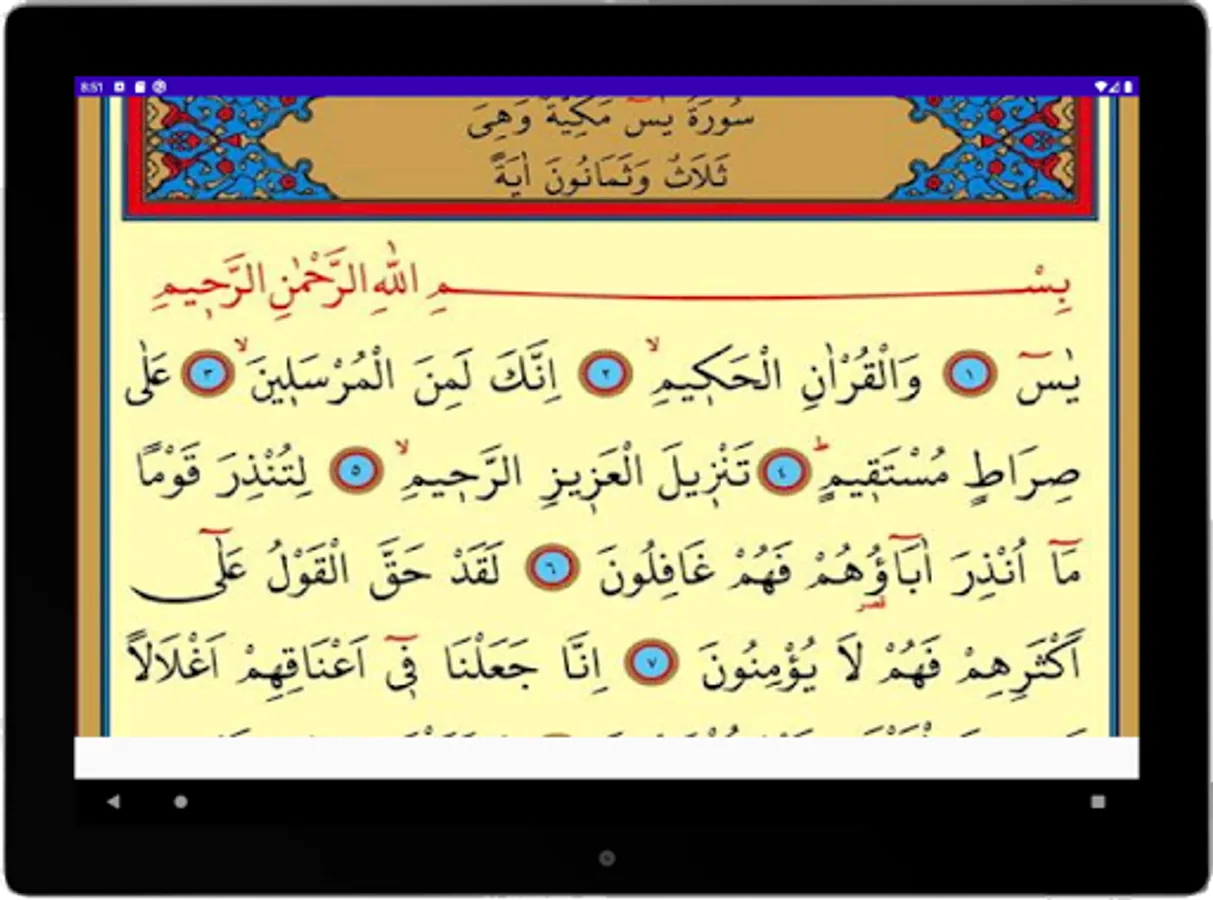 8:51
سُورَةُ يٰسٓ مَكِّيَّةٌ وَهِىَ
ثَلَاثٌ وَثَمَانُونَ اٰيَةً
بِسْــــــــــــــــمِ اللّٰهِ الرَّحْمٰنِ الرَّحٖيمِ
يٰسٓ ١ وَالْقُرْاٰنِ الْحَكٖيمِۙ ٢ اِنَّكَ لَمِنَ الْمُرْسَلٖينَۙ ٣ عَلٰى
صِرَاطٍ مُسْتَقٖيمٍؕ ٤ تَنْزٖيلَ الْعَزٖيزِ الرَّحٖيمِۙ ٥ لِتُنْذِرَ قَوْمًا
مَٓا اُنْذِرَ اٰبَٓاؤُ۬هُمْ فَهُمْ غَافِلُونَ ٦ لَقَدْ حَقَّ الْقَوْلُ عَلٰٓى
قصر
اَكْثَرِهِمْ فَهُمْ لَا يُؤْمِنُونَ ٧ اِنَّا جَعَلْنَا فٖٓى اَعْنَاقِهِمْ اَغْلَالًا